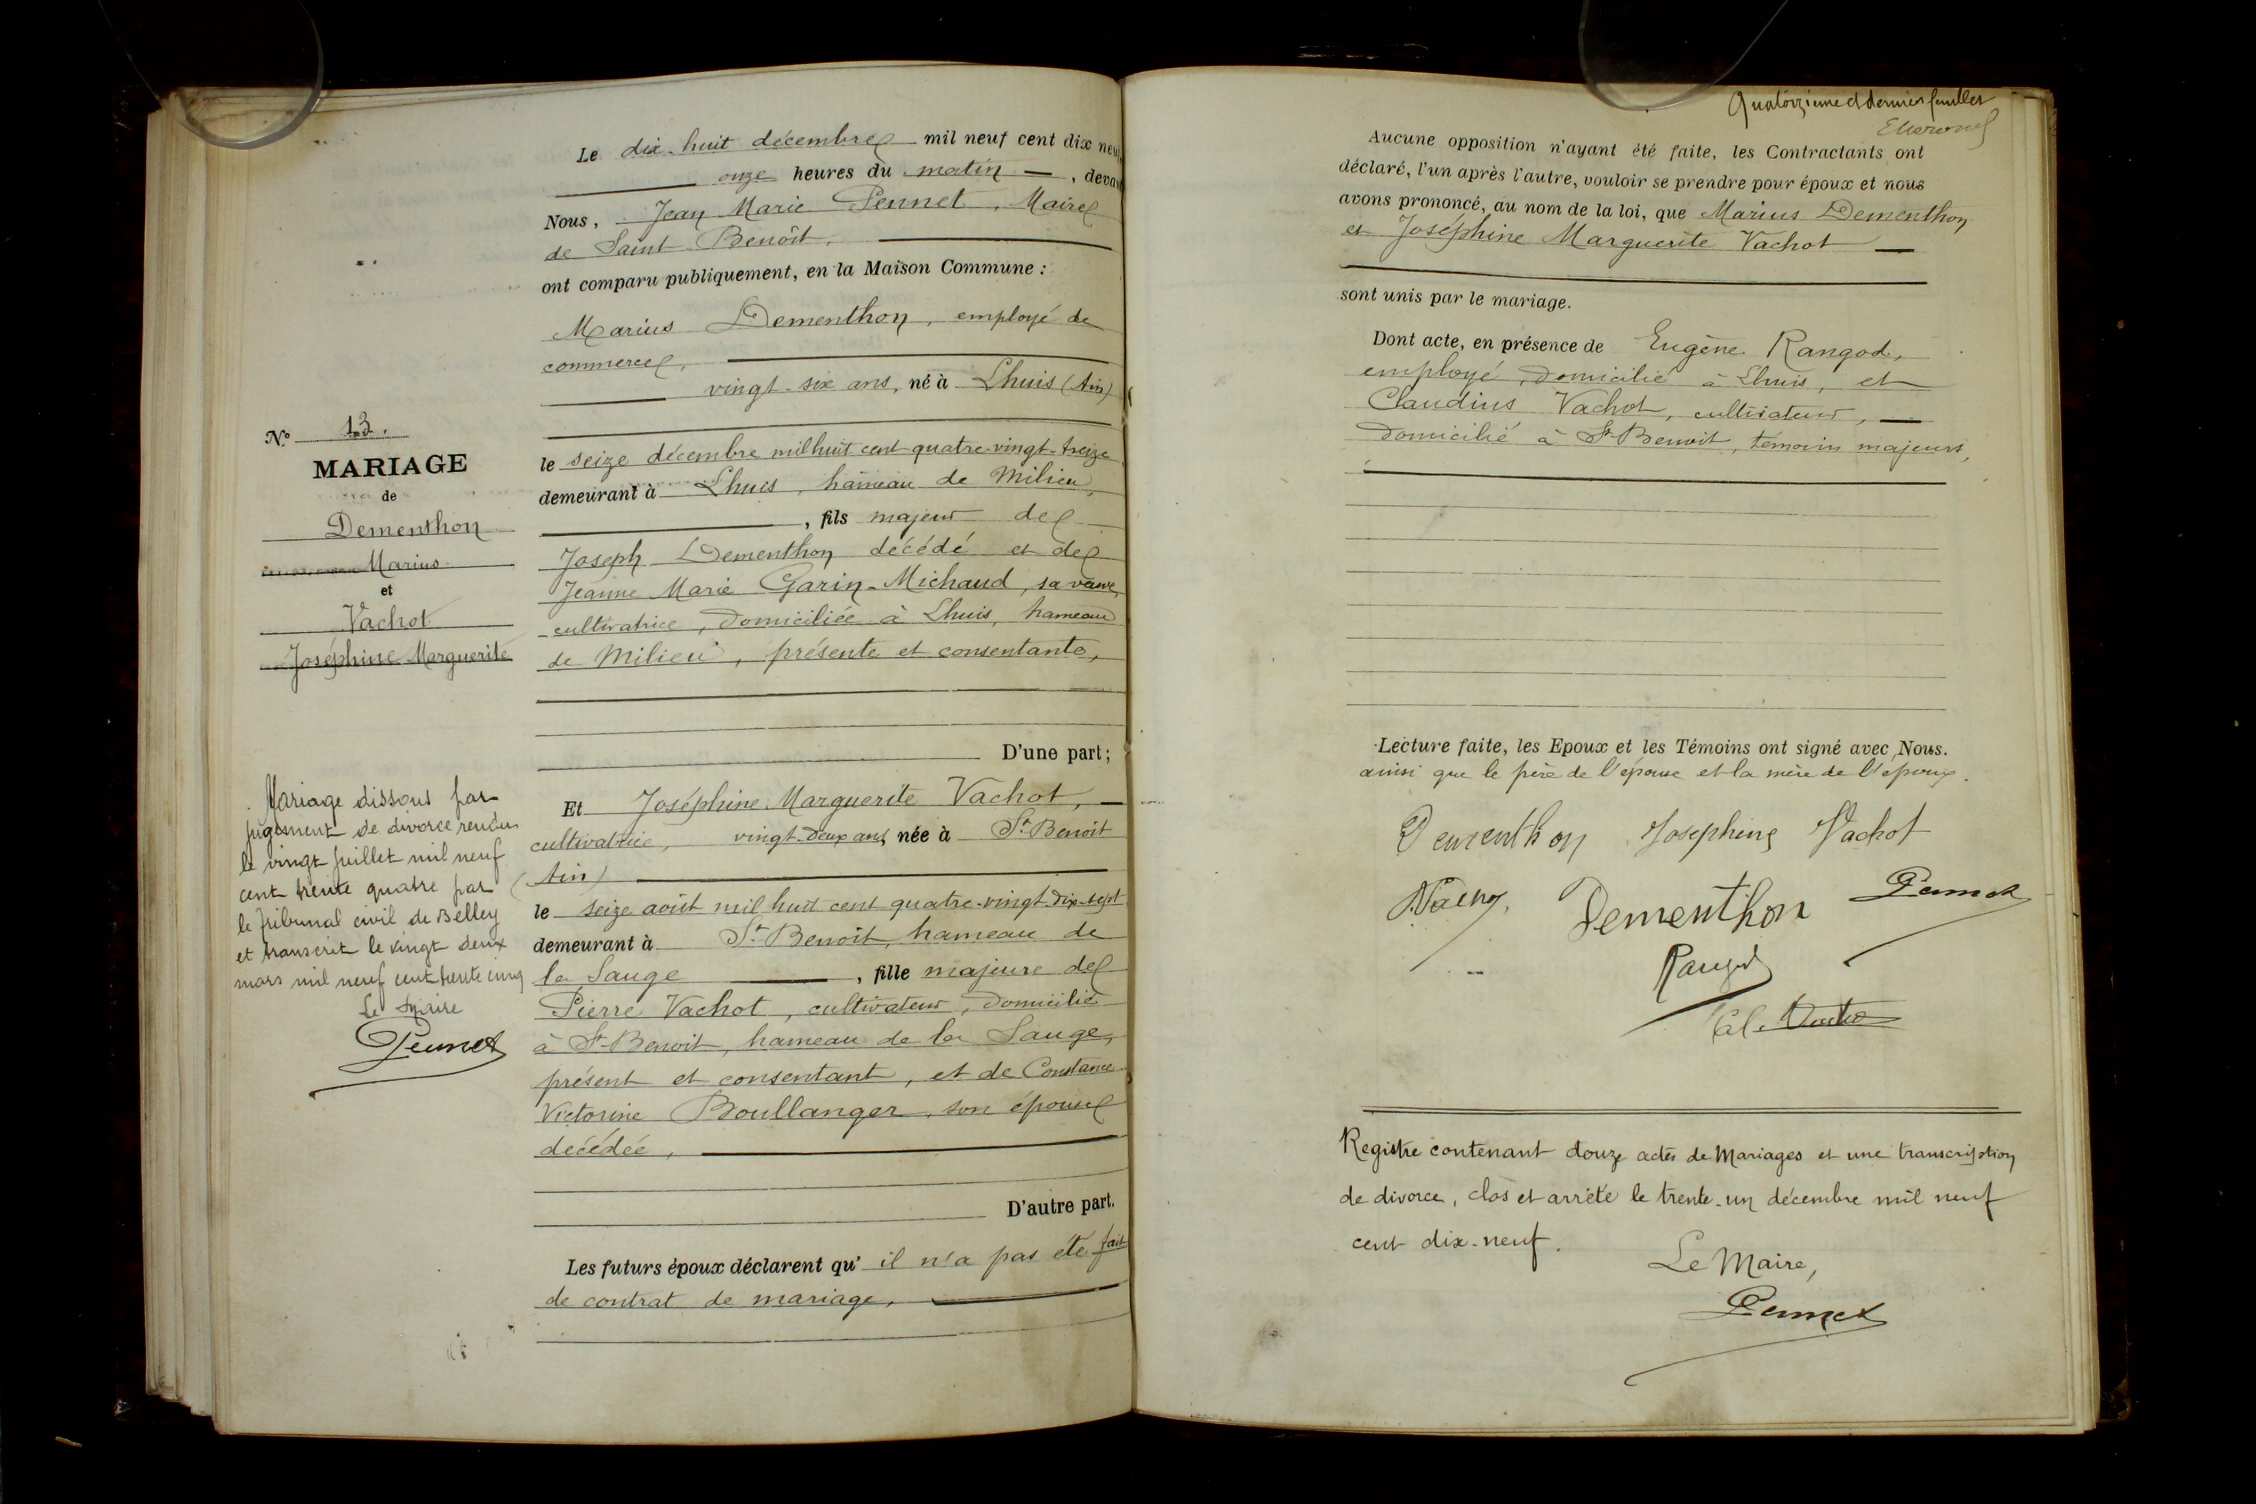 Le dix-huit décembre mil neuf cent dix neuf
onze heures du matin, devant
Nous, Jean Marie Pennet, Maire
de Saint Benoît,
ont comparu publiquement, en la Maison Commune :
Marius Dementhon, employé de
commerce,
vingt-six ans, né à Lhuis (Ain)
le seize décembre mil huit cent quatre-vingt-treize
demeurant à Lhuis, hameau de Milieu,
, fils majeur de
Joseph Dementhon décédé et de
Jeanne Marie Garin-Michaud, sa veuve,
cultivatrice, domiciliée à Lhuis, hameau
de Milieu, présente et consentante,
D'une part ;
Et Joséphine Marguerite Vachot,
cultivatrice, vingt-deux ans, née à St Benoit
(Ain)
le seize août mil huit cent quatre-vingt-dix-sept
demeurant à St Benoit, hameau de
la Sauge, fille majeure de
Pierre Vachot, cultivateur, domicilié
à St-Benoit, hameau de la Sauge,
présent et consentant, et de Constance
Victorine Boullanger, son épouse
décédée,
D'autre part.
Les futurs époux déclarent qu'il n'a pas été fait
de contrat de mariage,
N° 13.
MARIAGE
de
Dementhon
Marius
et
Vachot
Joséphine Marguerite
Mariage dissous par
jugement de divorce rendu
le vingt juillet mil neuf
cent trente quatre par
le tribunal civil de Belley
et transcrit le vingt deux
mars mil neuf cent trente cinq
Le Maire
Pennet
Quatorzième et dernier feuillet
Aucune opposition n'ayant été faite, les Contractants ont
déclaré, l'un après l'autre, vouloir se prendre pour époux et nous
avons prononcé, au nom de la loi, que Marius Dementhon
et Joséphine Marguerite Vachot
sont unis par le mariage.
Dont acte, en présence de Eugène Rangod,
employé, domicilié à Lhuis, et
Claudius Vachot, cultivateur,
domicilié à St-Benoit, témoins majeurs,
Lecture faite, les Epoux et les Témoins ont signé avec Nous.
ainsi que le père de l'épouse et la mère de l'époux.
Dementhon Josephine Vachot
Dementhon Pennet
Rangod
Registre contenant douze actes de Mariages et une transcription
de divorce, clos et arrêté le trente-un décembre mil neuf
cent dix-neuf.
Le Maire,
Pennet